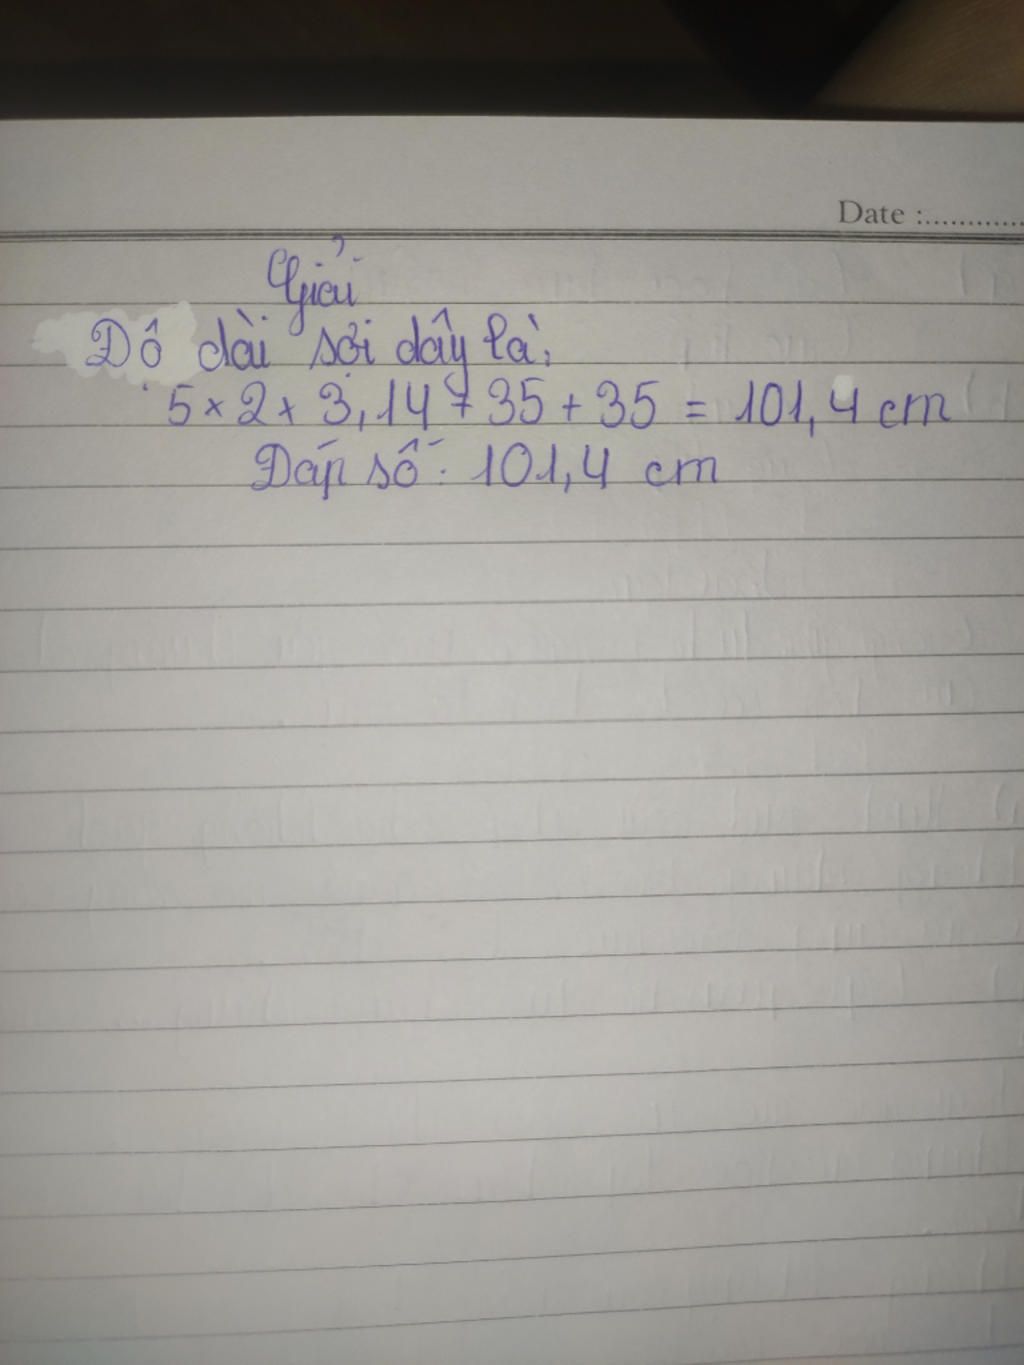 Date :............
Giải
Độ dài sợi dây là:
5 × 2 × 3,14 + 35 + 35 = 101,4 cm
Đáp số: 101,4 cm